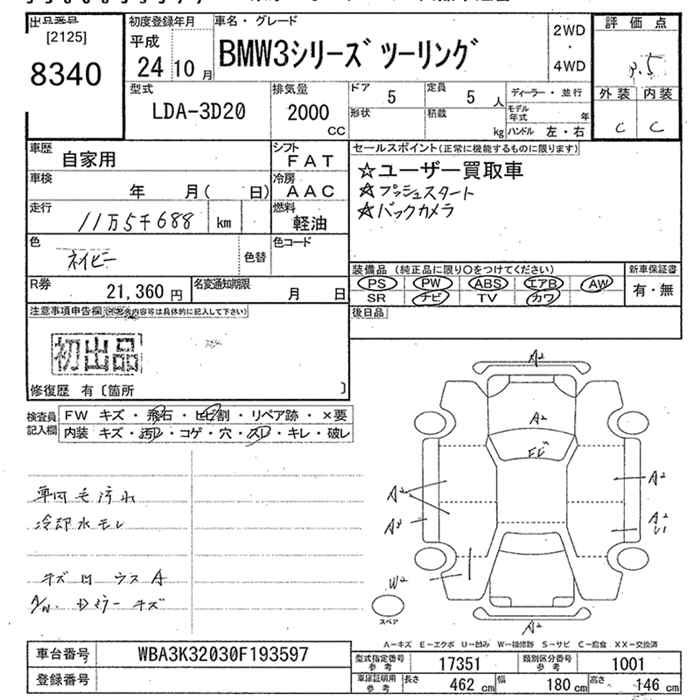 [2125]
8340
初度登録年月
平成
24 10 月
車名・グレード
BMW3シリーズ ツーリング
2WD
・
4WD
評価点
3.5
外装 内装
C C
型式
LDA-3D20
排気量
2000
CC
ドア
5
定員
5 人
形状
積載
kg
ディーラー・並行
モデル年式 年
ハンドル 左・右
車歴
自家用
シフト
FAT
車検
年 月( 日)
冷房
AAC
走行
11万5千688 km
燃料
軽油
色
ネイビー
色替
色コード
R券
21,360 円
名変通知期限
月 日
セールスポイント(正常に機能するものに限ります)
☆ユーザー買取車
☆プッシュスタート
☆バックカメラ
装備品 (純正品に限り○をつけてください)
PS PW ABS エアB AW
SR ナビ TV カワ
新車保証書
有・無
後日品
注意事項申告欄
初出品
修復歴 有〔箇所 〕
検査員記入欄
FW キズ・飛石・ヒビ割・リペア跡・×要
内装 キズ・汚レ・コゲ・穴・スレ・キレ・破レ
車内毛汚れ
冷却水モレ
A2
A2
A2
A2
A2
A3
W2
スペア
A2
A-キズ E-エクボ U-凹み W-補修跡 S-サビ C-腐食 XX-交換済
車台番号
WBA3K32030F193597
登録番号
型式指定番号
参考
17351
類別区分番号
参考
1001
車庫証明用
参考
長さ
462 cm
幅
180 cm
高さ
146 cm